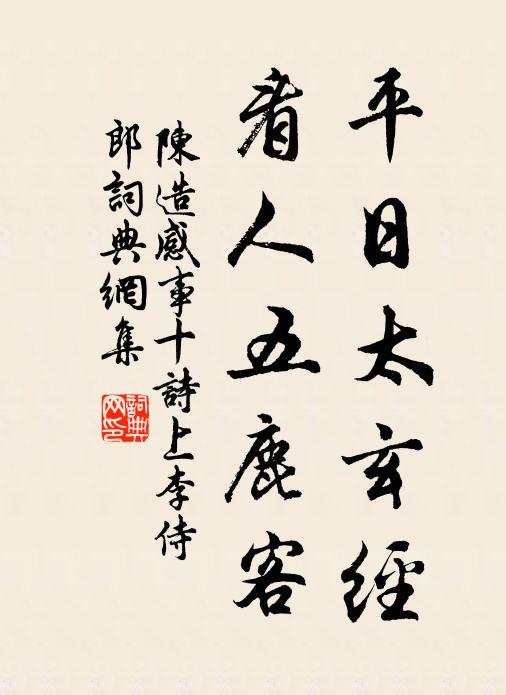 平日太玄經
看人五鹿客
陳造感事十詩上李侍
郎詞典網集
詞典网印